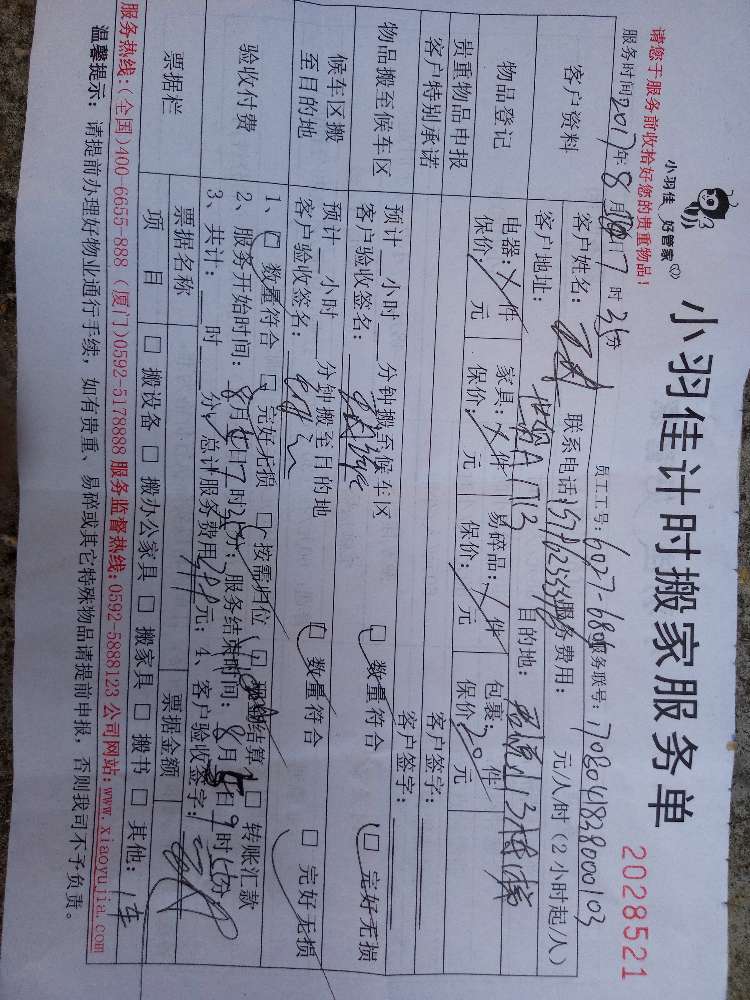 小羽佳 好管家
小羽佳计时搬家服务单
2028521
请您于服务前收拾好您的贵重物品!
员工工号: 6027-680 服务联号: 1708041838000103
服务时间 2017年 8 月 17 时 35分
客户资料
客户姓名: 联系电话: 服务费用: 元/人/时 (2小时起/人)
客户地址: 目的地:
物品登记
电器: 件 家具: 件 易碎品: 件 包裹: 20 件
保价: 元 保价: 元 保价: 元 保价: 元
贵重物品申报 客户签字:
客户特别承诺 客户签字:
物品搬至候车区
预计 小时 分钟搬至候车区 □ 数量符合 □ 完好无损
客户验收签名:
候车区搬至目的地
预计 小时 分钟搬至目的地 □ 数量符合 □ 完好无损
客户验收签名:
验收付费
1、□ 数量符合 □ 完好无损 □ 按需归位 □ 现金结算 □ 转账汇款
2、服务开始时间: 8 月 日 17 时 35 分; 服务结束时间: 8 月 日 时 分
3、共计: 时 分; 总计服务费用 元; 4、客户验收签字:
票据栏
票据名称 票据金额
项 目 □ 搬设备 □ 搬办公家具 □ 搬家具 □ 搬书 □ 其他: 1车
服务热线:(全国)400-6655-888 (厦门)0592-5178888 服务监督热线:0592-5888123 公司网站:www.xiaoyujia.com
温馨提示: 请提前办理好物业通行手续, 如有贵重、易碎或其它特殊物品请提前申报, 否则我司不予负责。